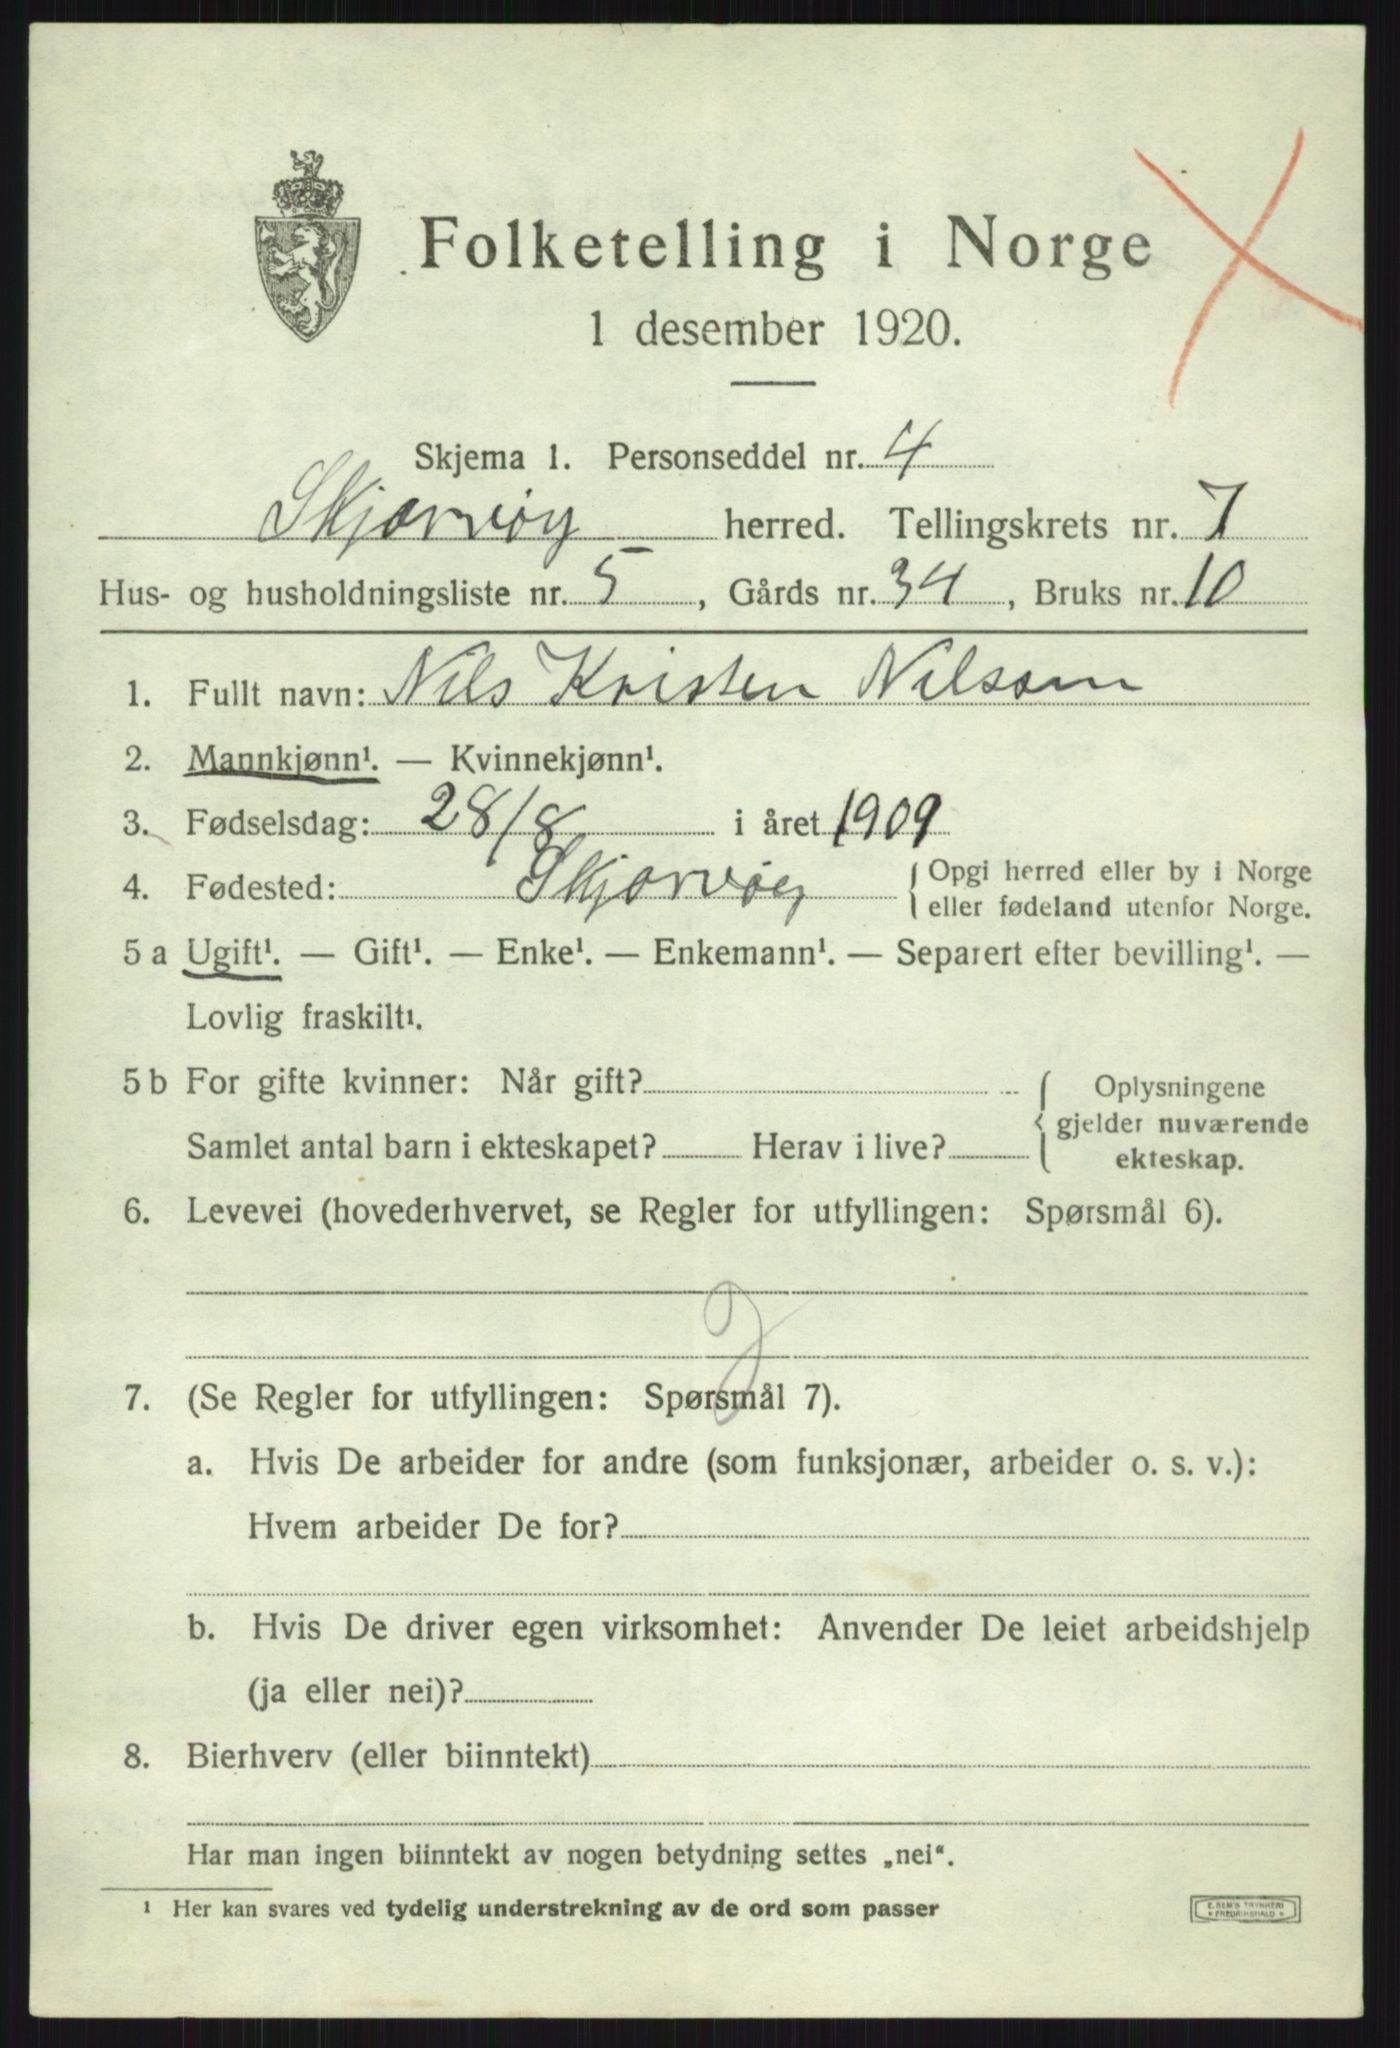 Folketelling i Norge
1 desember 1920.
Skjema 1. Personseddel nr. 4
Skjærvøy herred. Tellingskrets nr. 7
Hus- og husholdningsliste nr. 5, Gårds nr. 34, Bruks nr. 10
1. Fullt navn: Nils Kristen Nilsen
2. Mannkjønn¹. — Kvinnekjønn¹.
3. Fødselsdag: 28/8 i året 1909
4. Fødested: Skjærvøy { Opgi herred eller by i Norge
eller fødeland utenfor Norge.
5 a Ugift¹. — Gift¹. — Enke¹. — Enkemann¹. — Separert efter bevilling¹. —
Lovlig fraskilt¹.
5 b For gifte kvinner: Når gift? { Oplysningene
gjelder nuværende
Samlet antal barn i ekteskapet? Herav i live?
ekteskap.
6. Levevei (hovederhvervet, se Regler for utfyllingen: Spørsmål 6).
7. (Se Regler for utfyllingen: Spørsmål 7).
a. Hvis De arbeider for andre (som funksjonær, arbeider o. s. v.):
Hvem arbeider De for?
b. Hvis De driver egen virksomhet: Anvender De leiet arbeidshjelp
(ja eller nei)?
8. Bierhverv (eller biinntekt)
Har man ingen biinntekt av nogen betydning settes „nei“.
¹ Her kan svares ved tydelig understrekning av de ord som passer
E. SEM'S TRYKKERI
* FREDRIKSHALD *